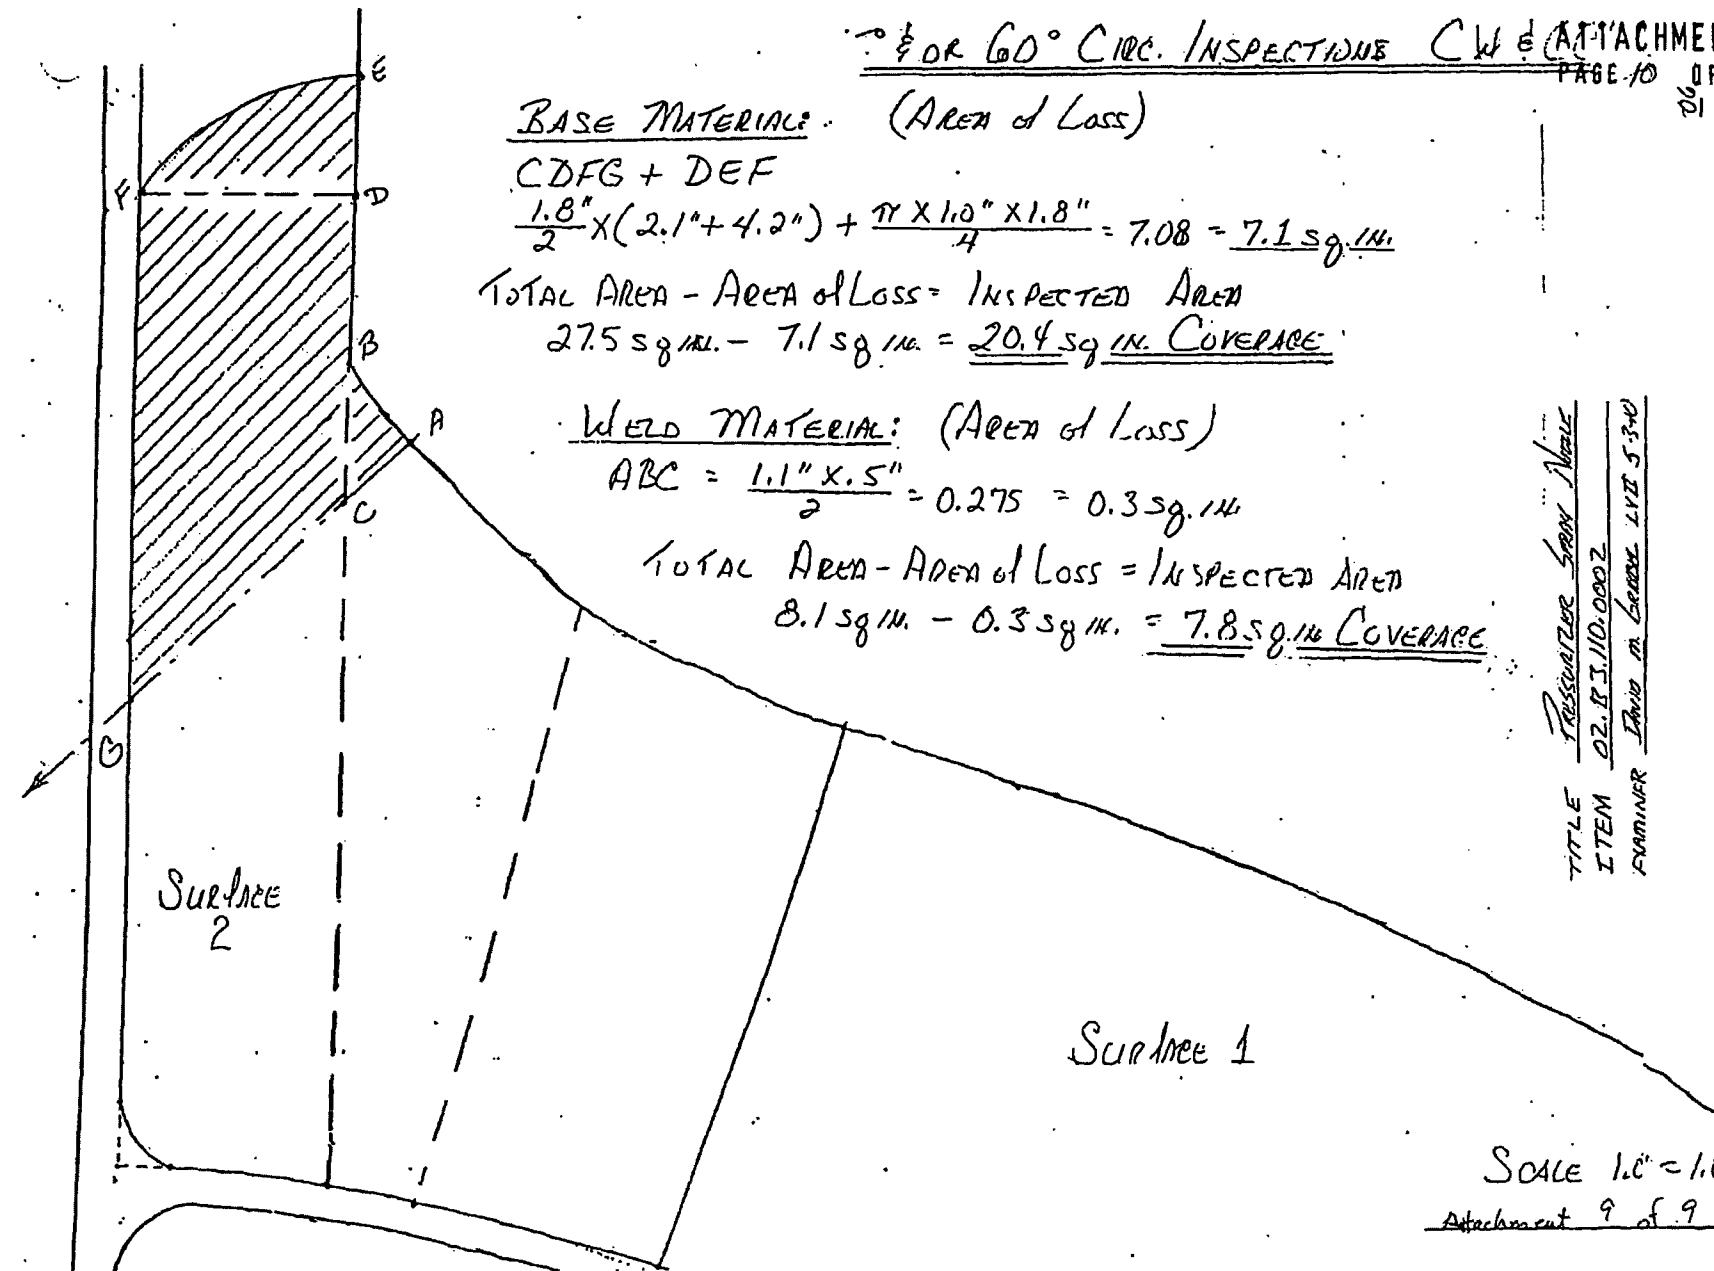 & OR 60° CIRC. INSPECTIONS CW &
ATTACHMEN
PAGE 10 OF
BASE MATERIAL: (AREA of LOSS)
CDFG + DEF
1.8"/2 X (2.1" + 4.2") + π X 1.0" X 1.8"/4 = 7.08 = 7.1 sq. IN.
TOTAL AREA - AREA of LOSS = INSPECTED AREA
27.5 sq IN. - 7.1 sq IN. = 20.4 sq IN. COVERAGE
WELD MATERIAL: (AREA of LOSS)
ABC = 1.1" X .5"/2 = 0.275 = 0.3 sq. IN.
TOTAL AREA - AREA of LOSS = INSPECTED AREA
8.1 sq IN. - 0.3 sq IN. = 7.8 sq. IN COVERAGE
E
F
D
B
A
C
G
SURFACE
2
SURFACE 1
TITLE PRESSURIZER SPRAY NOZZLE
ITEM 02.B3.110.0002
EXAMINER DAVID M.
SCALE 1.0" = 1.
Attachment 9 of 9